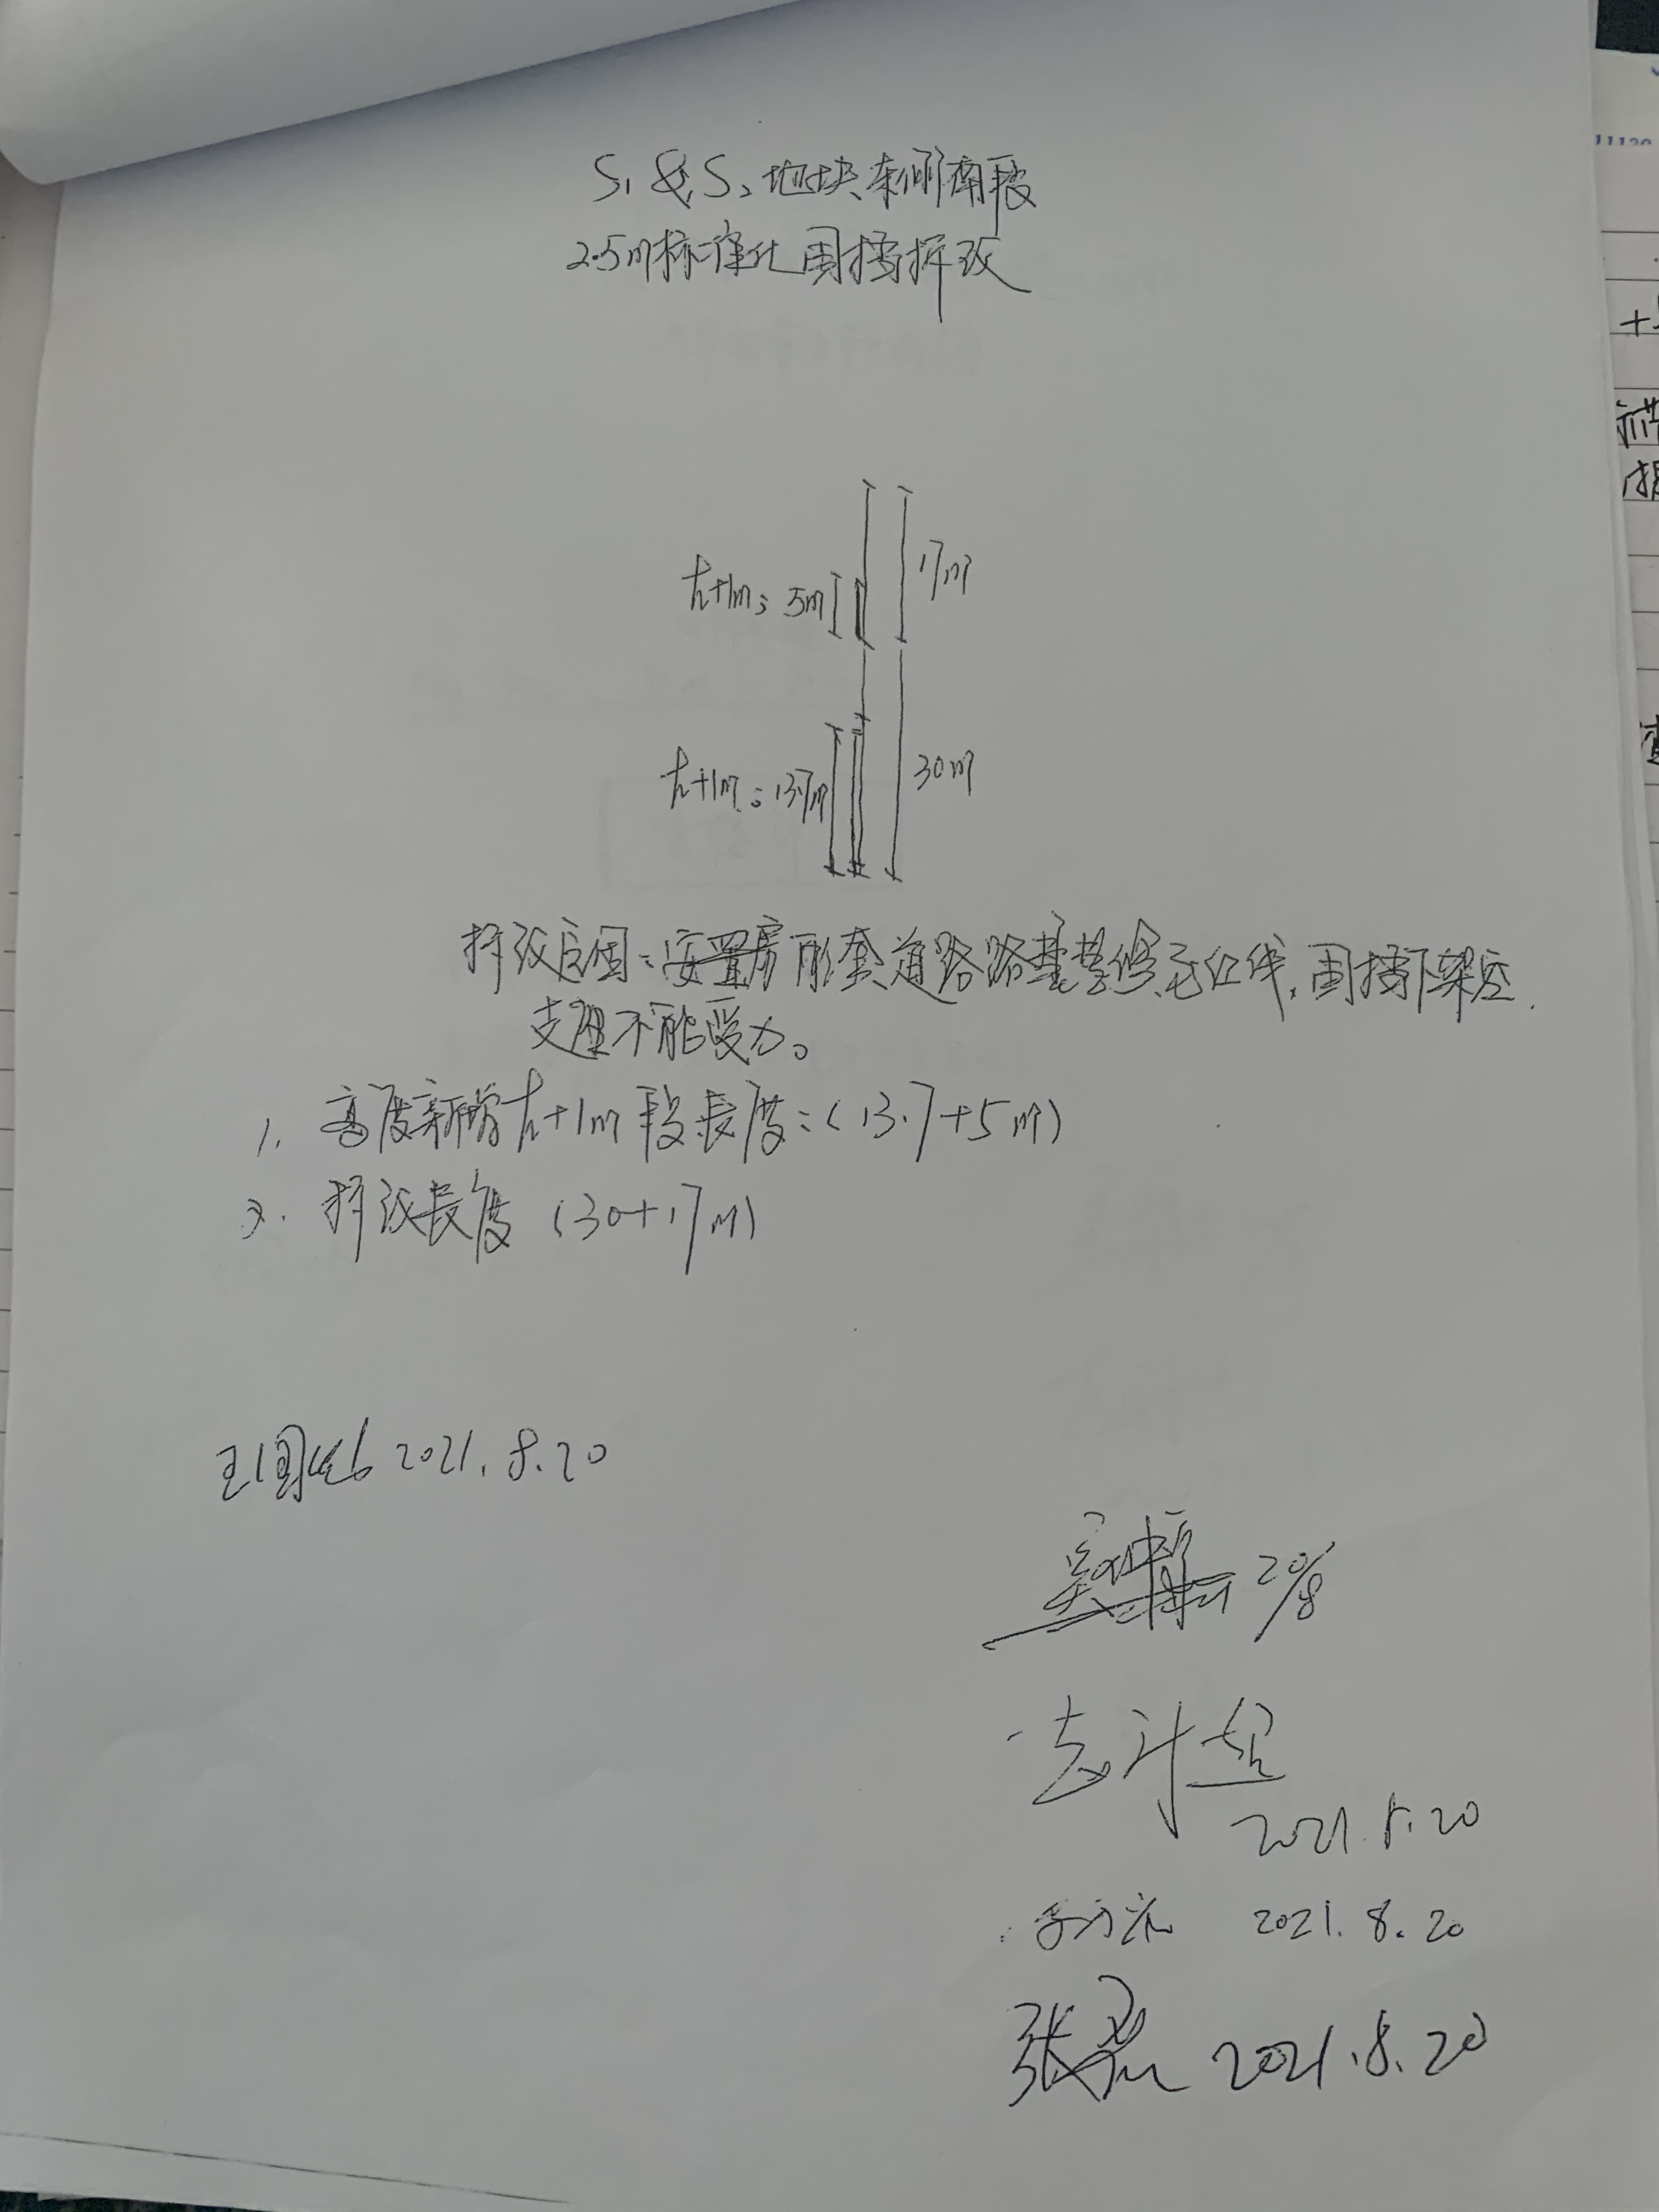 S₁ & S₂ 地块东侧南段
2.5m标准化围挡拆改
17m
h+1m: 5m
30m
h+1m: 13.7m
拆改原因:安置房配套道路路基整修至红线,围挡下架空
支座不能受力。
1. 高度新增h+1m段长度:(13.7+5m)
2. 拆改长度 (30+17m)
2021.8.20
20/8
2021.8.20
2021.8.20
张 2021.8.20